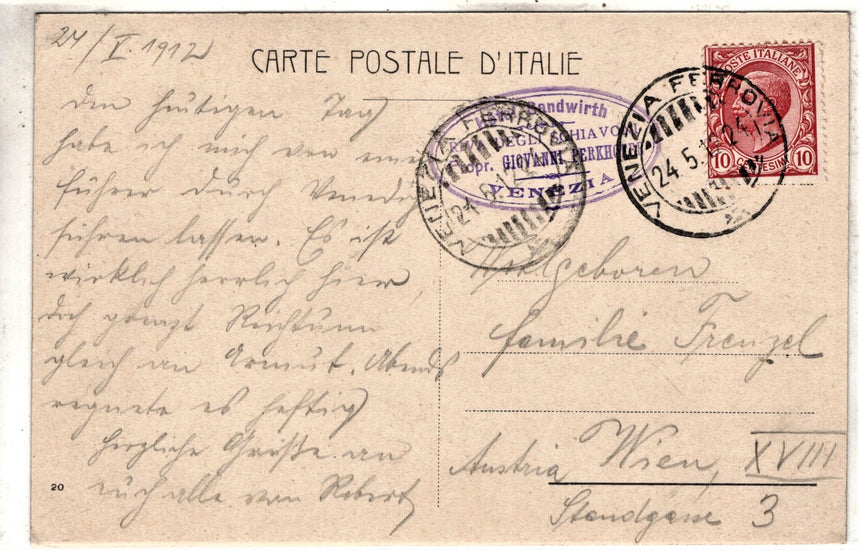 24/V. 1912
CARTE POSTALE D'ITALIE
Den heutigen Tag
habe ich mich von einem
Führer durch Venedig
führen lassen. Es ist
wirklich herrlich hier,
doch grenzt Reichtum
gleich an Armut. Abends
regnete es heftig
Herzliche Grüße an
euch alle von Robert
20
Sandwirth
DEGLI SCHIAVO
Propr. GIOVANNI PERKHO
VENEZIA
VENEZIA FERROVIA
VENEZIA FERROVIA
24.5.12
POSTE ITALIANE
10 CENTESIMI 10
Wohlgeboren
Familie Frenzel
Austria Wien, XVIII
3